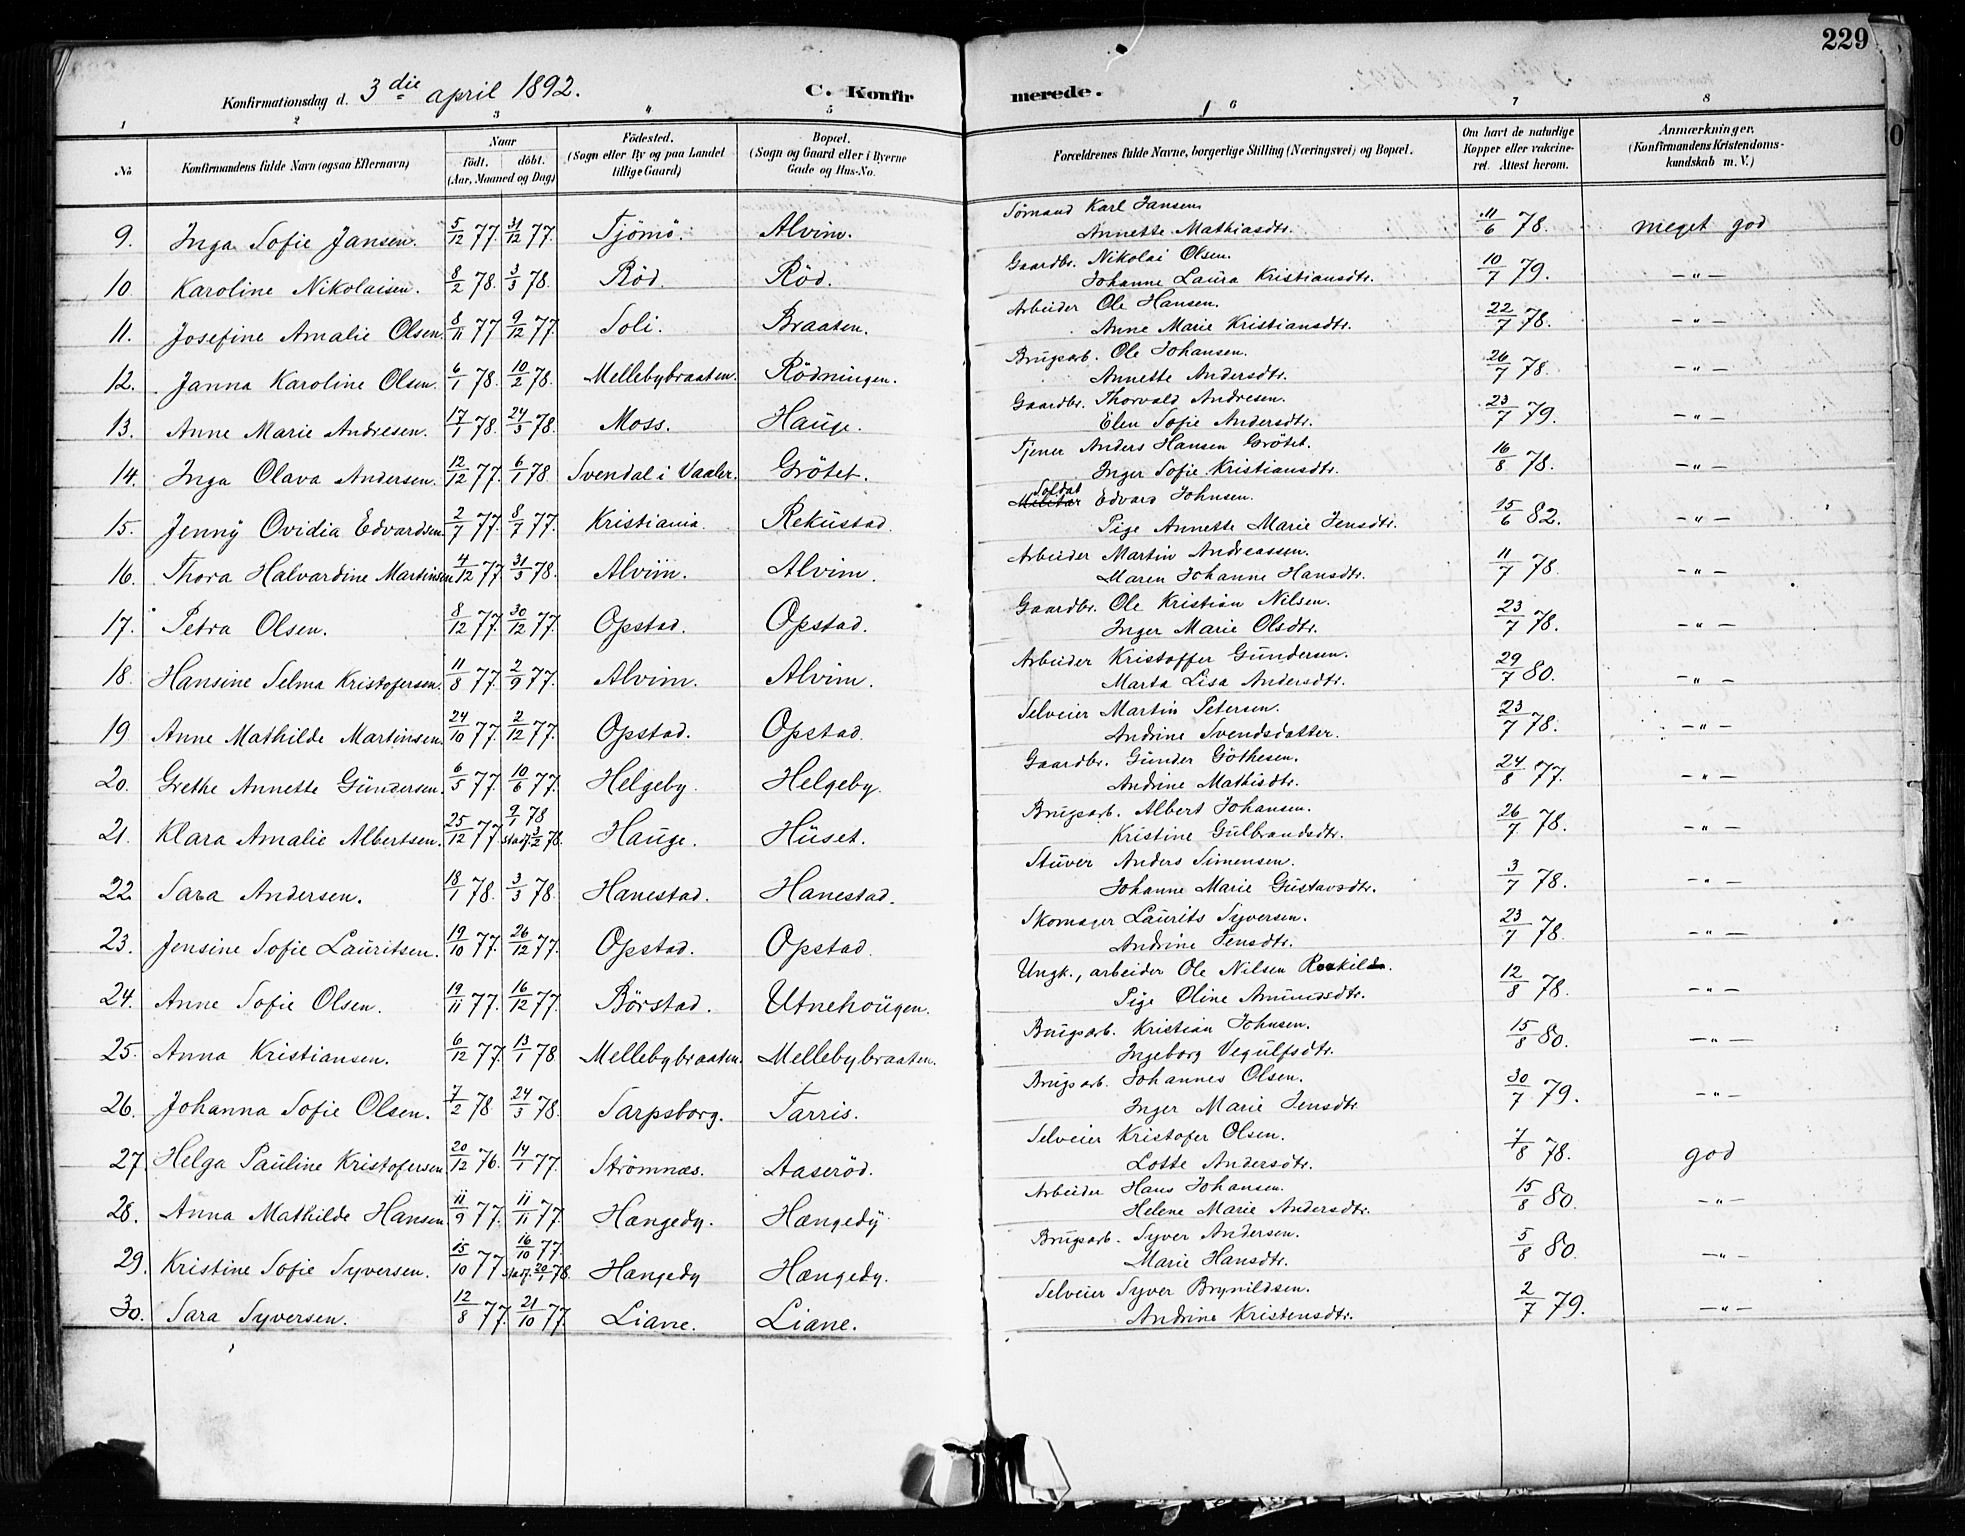 229
Konfirmationsdag d. 3die april 1892. C. Konfirmerede.
1 2 3 4 5 6 7 8
No Konfirmandens fulde Navn (ogsaa Efternavn) Naar födt. döbt. (Aar, Maaned og Dag) Födested. (Sogn eller By og paa Landet tillige Gaard) Bopæl. (Sogn og Gaard eller i Byerne Gade og Hus-No. Forældrenes fulde Navne, borgerlige Stilling (Næringsvei) og Bopæl. Om havt de naturlige Kopper eller vakcineret. Attest herom. Anmærkninger. (Konfirmandens Kristendomskundskab m. V.)
9. Inga Sofie Jansen. 5/12 77. 31/12 77. Tjömö. Alvim. Sömand Karl Jansen. 11/6 78. meget god
Annette Mathiasdtr.
10 Karoline Nikolaisen. 8/2 78. 3/3 78. Röd. Röd. Gaardbr. Nikolai Olsen. 10/7 79. -"-
Johanne Laura Kristiansdtr.
11. Josefine Amalie Olsen. 8/11 77 9/12 77. Soli. Braaten. Arbeider Ole Hansen. 22/7 78. -"-
Anne Marie Kristiansdtr.
12. Janna Karoline Olsen. 6/1 78. 10/2 78. Mellebybraaten. Rödningen. Brugsarb. Ole Johansen. 26/7 78. -"-
Annette Andersdtr.
13. Anne Marie Andresen. 17/1 78. 24/3 78. Moss. Hauge. Gaardbr. Thorvald Andresen. 23/7 79. -"-
Elen Sofie Andersdtr.
14. Inga Olava Andersen. 12/12 77. 6/1 78. Svendal i Vaaler. Grötet. Tjener Anders Hansen Grötet. 16/8 78. -"-
Inger Sofie Kristiansdtr.
15. Jenny Ovidia Edvardsen 2/7 77. 8/7 77. Kristiania. Rekustad. Militær Soldat Edvard Johnsen. 15/6 82. -"-
Pige Annette Marie Jensdtr.
16. Thora Halvardine Martinsen 4/12 77. 31/3 78. Alvim. Alvim. Arbeider Martin Andreassen. 11/7 78. -"-
Maren Johanne Hansdtr.
17. Petra Olsen. 8/12 77. 30/12 77. Opstad. Opstad. Gaardbr. Ole Kristian Nilsen. 23/7 78. -"-
Inger Marie Olsdtr.
18. Hansine Selma Kristofersen. 11/8 77. 2/9 77. Alvim. Alvim. Arbeider Kristoffer Gundersen. 29/7 80. -"-
Marta Lisa Andersdtr.
19 Anne Mathilde Martinsen. 24/10 77. 2/12 77. Opstad. Opstad. Selveier Martin Petersen. 23/7 78. -"-
Andrine Svendsdatter.
20. Grethe Annette Gundersen. 6/5 77. 10/6 77. Helgeby. Helgeby. Gaardbr. Gunder Göthesen. 24/8 77. -"-
Andrine Mathisdtr.
21. Klara Amalie Albertsen. 25/12 77. 9/1 78 stadf. 3/2 78. Hauge. Huset. Brugsarb. Albert Johansen. 26/7 78. -"-
Kristine Gulbrandsdtr.
22. Sara Andersen. 18/1 78. 3/3 78. Hanestad. Hanestad. Stuver Anders Simensen. 3/7 78. -"-
Johanne Marie Gustavsdtr.
23. Jensine Sofie Lauritsen. 19/10 77. 26/12 77. Opstad. Opstad. Skomager Laurits Syversen. 23/7 78. -"-
Andrine Jensdtr.
24. Anne Sofie Olsen. 19/11 77. 16/12 77. Börstad. Utnehougen. Ungk., arbeider Ole Nilsen 12/8 78. -"-
Pige Oline Amundsdtr.
25. Anna Kristiansen. 6/12 77. 13/1 78 Mellebybraaten. Mellebybraaten. Brugsarb. Kristian Johnsen. 15/8 80. -"-
Ingeborg Vegulfsdtr.
26. Johanna Sofie Olsen. 7/2 78 24/3 78. Sarpsborg. Tarris. Brugsarb. Johannes Olsen. 30/7 79. -"-
Inger Marie Jensdtr.
27. Helga Pauline Kristofersen 20/12 76. 14/1 77. Strömnæs. Aaseröd. Selveier Kristofer Olsen. 7/8 78. god
Lotte Andersdtr.
28. Anna Mathilde Hansen. 11/9 77. 11/11 77. Hængedy. Hængedy. Arbeider Hans Johansen. 15/8 80. -"-
Helene Marie Andersdtr.
29. Kristine Sofie Syversen. 15/10 77 16/10 77. stadf. 20/1 78. Hængedy Hængedy. Brugsarb. Syver Andersen. 5/8 80. -"-
Marie Hansdtr.
30. Sara Syversen. 12/8 77. 21/10 77. Liane. Liane. Selveier Syver Brynildsen. 2/7 79. -"-
Andrine Kristensdtr.